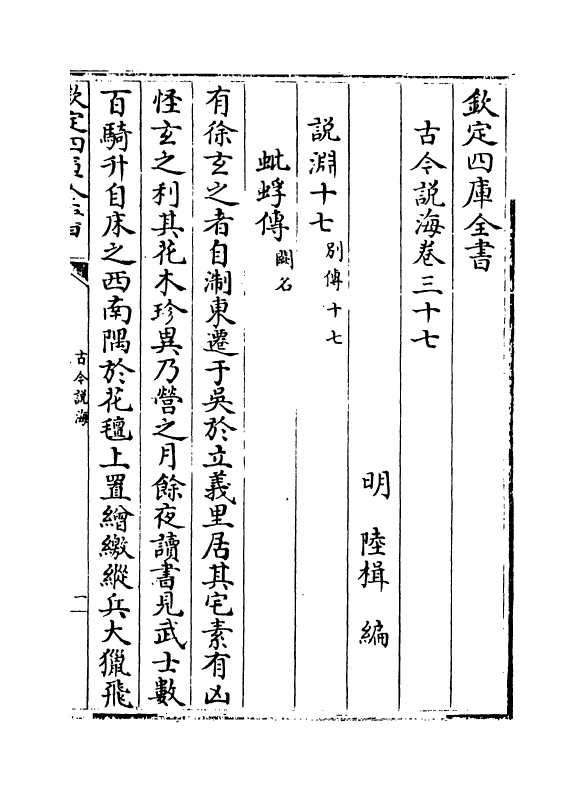 欽定四庫全書
古今説海卷三十七
明 陸楫 編
説淵十七 別傳十七
蚍蜉傳 闕名
有徐玄之者自淛東遷于吳於立義里居其宅素有凶
怪玄之利其花木珍異乃營之月餘夜讀書見武士數
百騎升自床之西南隅於花氊上置繒繳縱兵大獵飛
古今説海
一